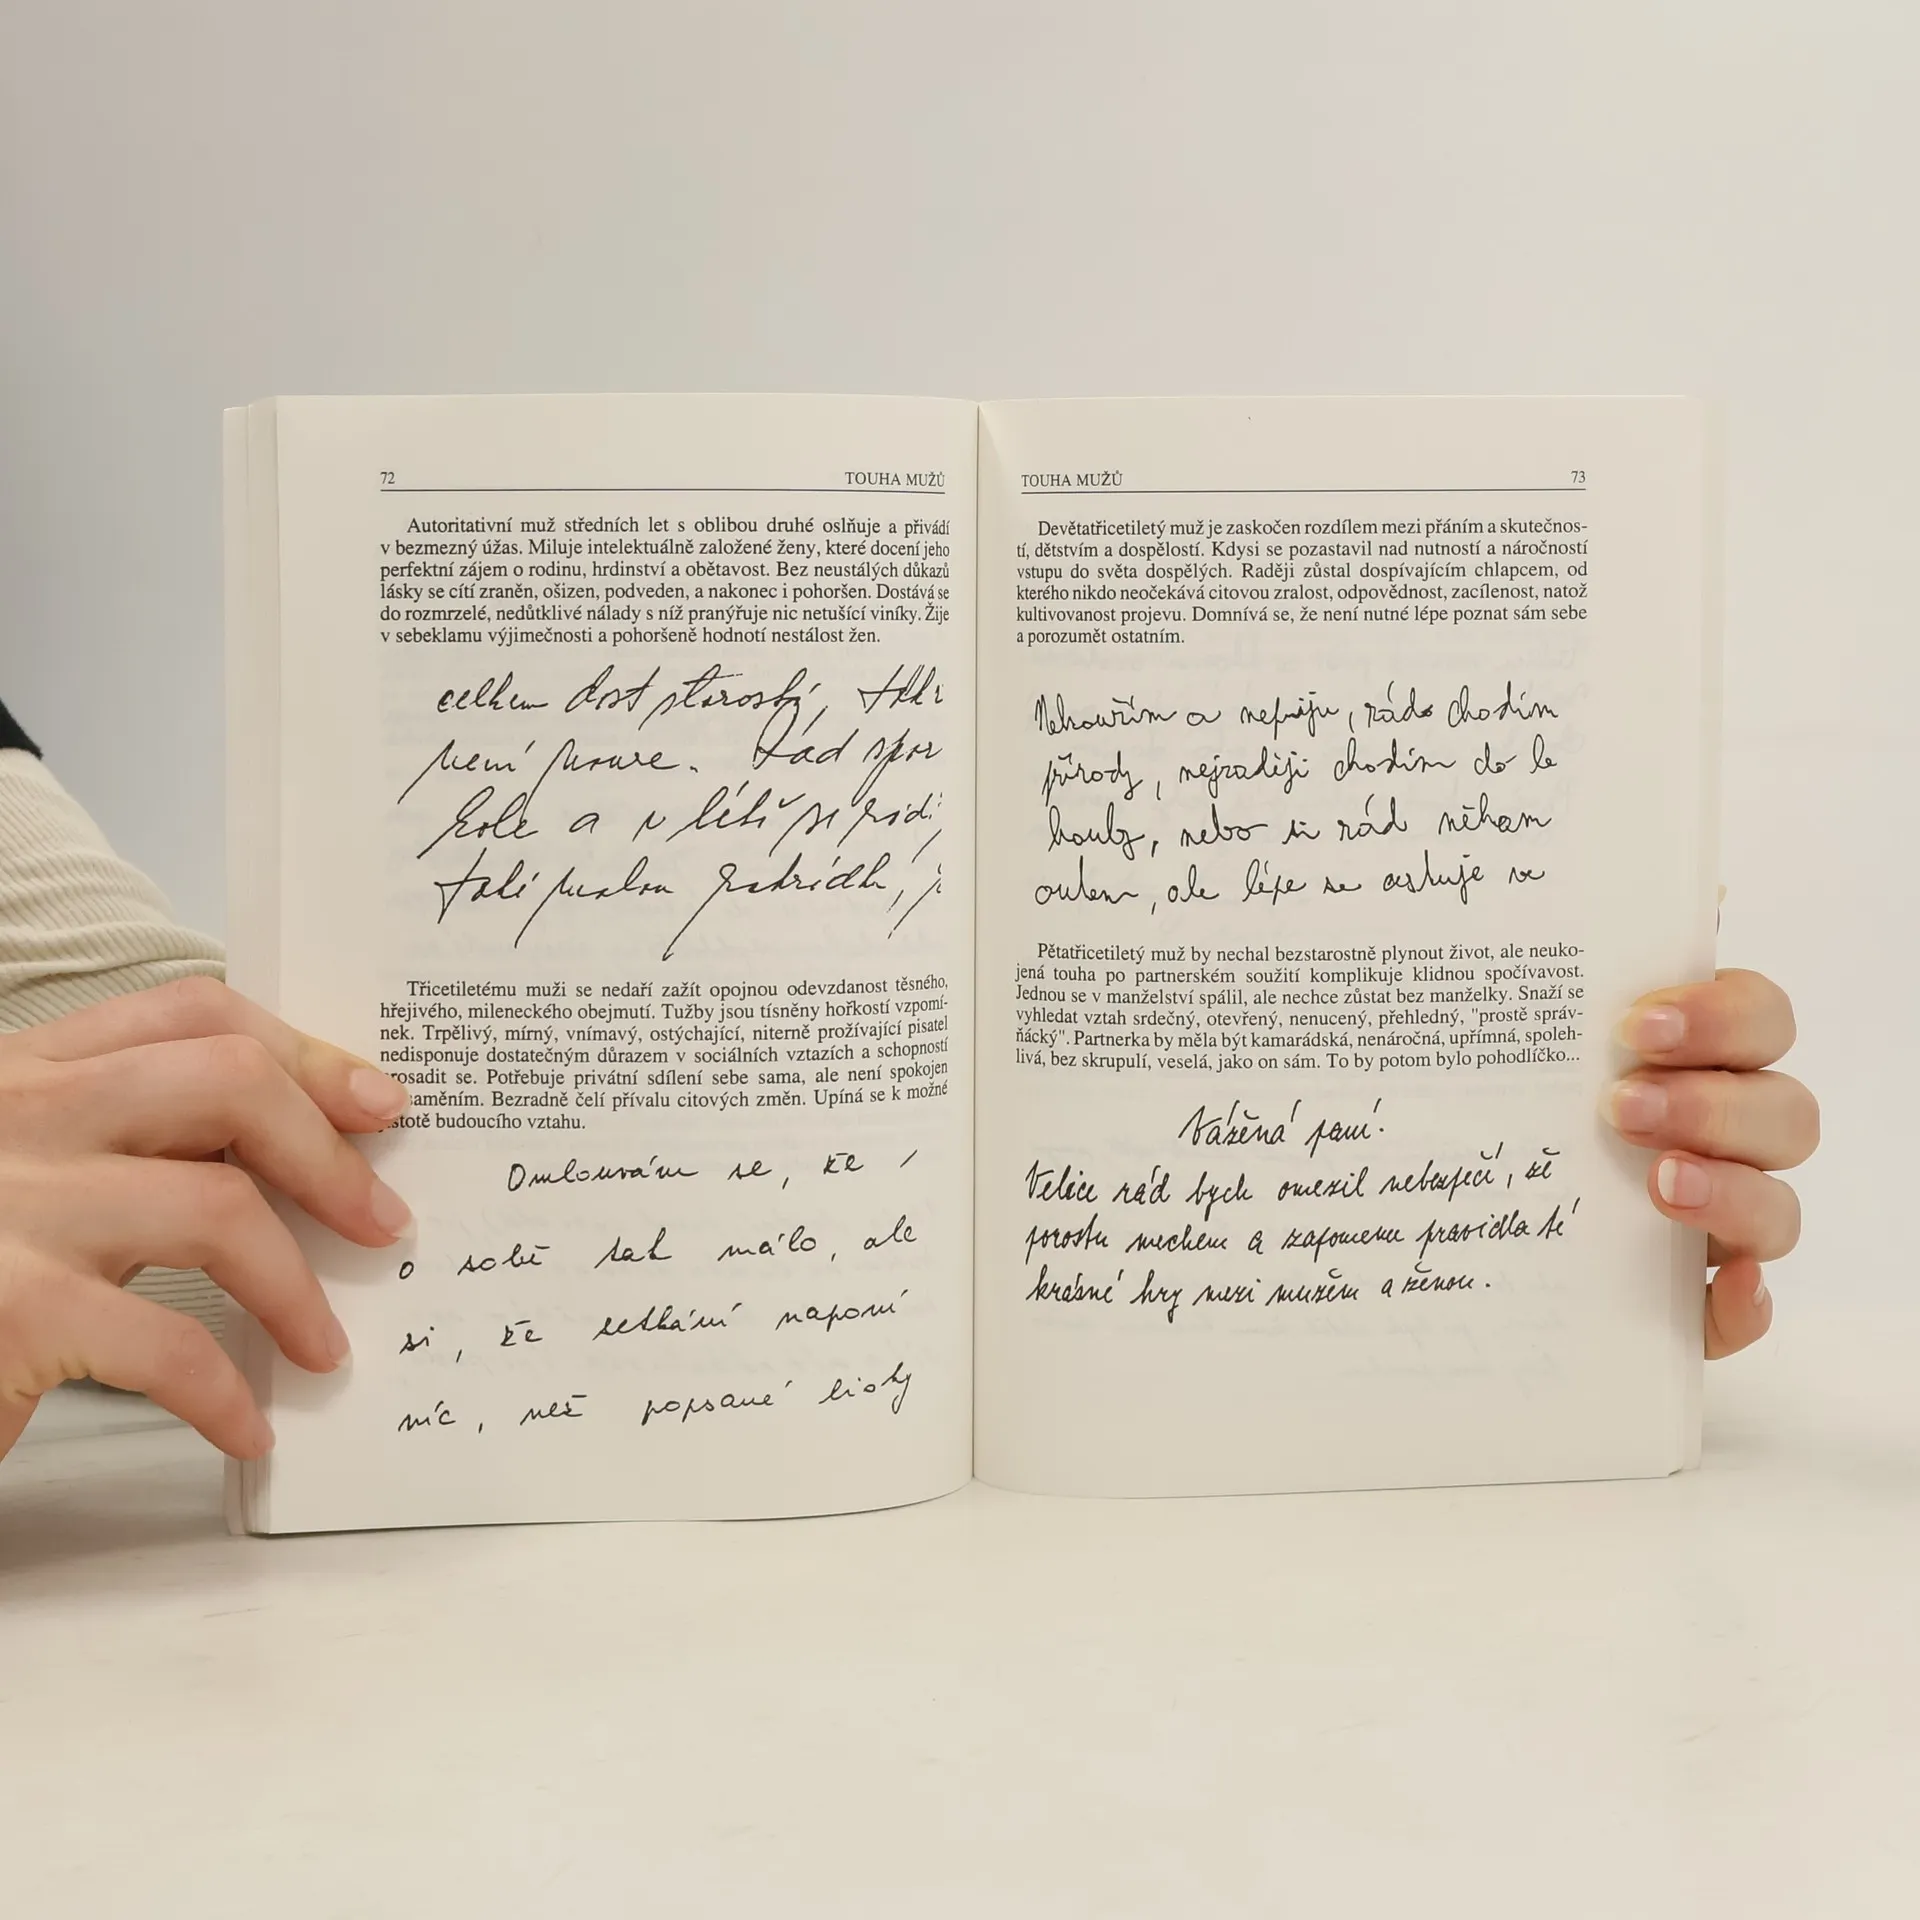 72 TOUHA MUŽŮ
Autoritativní muž středních let s oblibou druhé oslňuje a přivádí
v bezmezný úžas. Miluje intelektuálně založené ženy, které docení jeho
perfektní zájem o rodinu, hrdinství a obětavost. Bez neustálých důkazů
lásky se cítí zraněn, ošizen, podveden, a nakonec i pohoršen. Dostává se
do rozmrzelé, nedůtklivé nálady s níž pranýřuje nic netušící viníky. Žije
v sebeklamu výjimečnosti a pohoršeně hodnotí nestálost žen.
celkem dost starostí,
není nouze. Rád spor
kole a v létě si
také malou
Třicetiletému muži se nedaří zažít opojnou odevzdanost těsného,
hřejivého, mileneckého obejmutí. Tužby jsou tísněny hořkostí vzpomí-
nek. Trpělivý, mírný, vnímavý, ostýchající, niterně prožívající pisatel
nedisponuje dostatečným důrazem v sociálních vztazích a schopností
rosadit se. Potřebuje privátní sdílení sebe sama, ale není spokojen
saměním. Bezradně čelí přívalu citových změn. Upíná se k možné
stotě budoucího vztahu.
Omlouvám se, že
o sobě tak málo, ale
si, že setkání napoví
víc, než popsané lísky
TOUHA MUŽŮ 73
Devětatřicetiletý muž je zaskočen rozdílem mezi přáním a skutečnos-
tí, dětstvím a dospělostí. Kdysi se pozastavil nad nutností a náročností
vstupu do světa dospělých. Raději zůstal dospívajícím chlapcem, od
kterého nikdo neočekává citovou zralost, odpovědnost, zacílenost, natož
kultivovanost projevu. Domnívá se, že není nutné lépe poznat sám sebe
a porozumět ostatním.
Nekouřím a nepiju, rád chodím
přírody, nejraději chodím do le
houby, nebo si rád někam
autem, ale lépe se cestuje ve
Pětatřicetiletý muž by nechal bezstarostně plynout život, ale neuko-
jená touha po partnerském soužití komplikuje klidnou spočívavost.
Jednou se v manželství spálil, ale nechce zůstat bez manželky. Snaží se
vyhledat vztah srdečný, otevřený, nenucený, přehledný, "prostě správ-
ňácký". Partnerka by měla být kamarádská, nenáročná, upřímná, spoleh-
livá, bez skrupulí, veselá, jako on sám. To by potom bylo pohodlíčko...
Vážená paní!
Velice rád bych omezil nebezpečí, že
porostu mechem a zapomenu pravidla té
krásné hry mezi mužem a ženou.